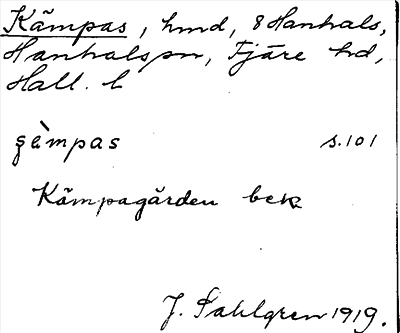 Kämpas, hmd, 8 Hanhals,
Hanhals sn, Fjäre hd,
Hall. l
şèmpas s. 101
Kämpagården bek
J. Sahlgren 1919.